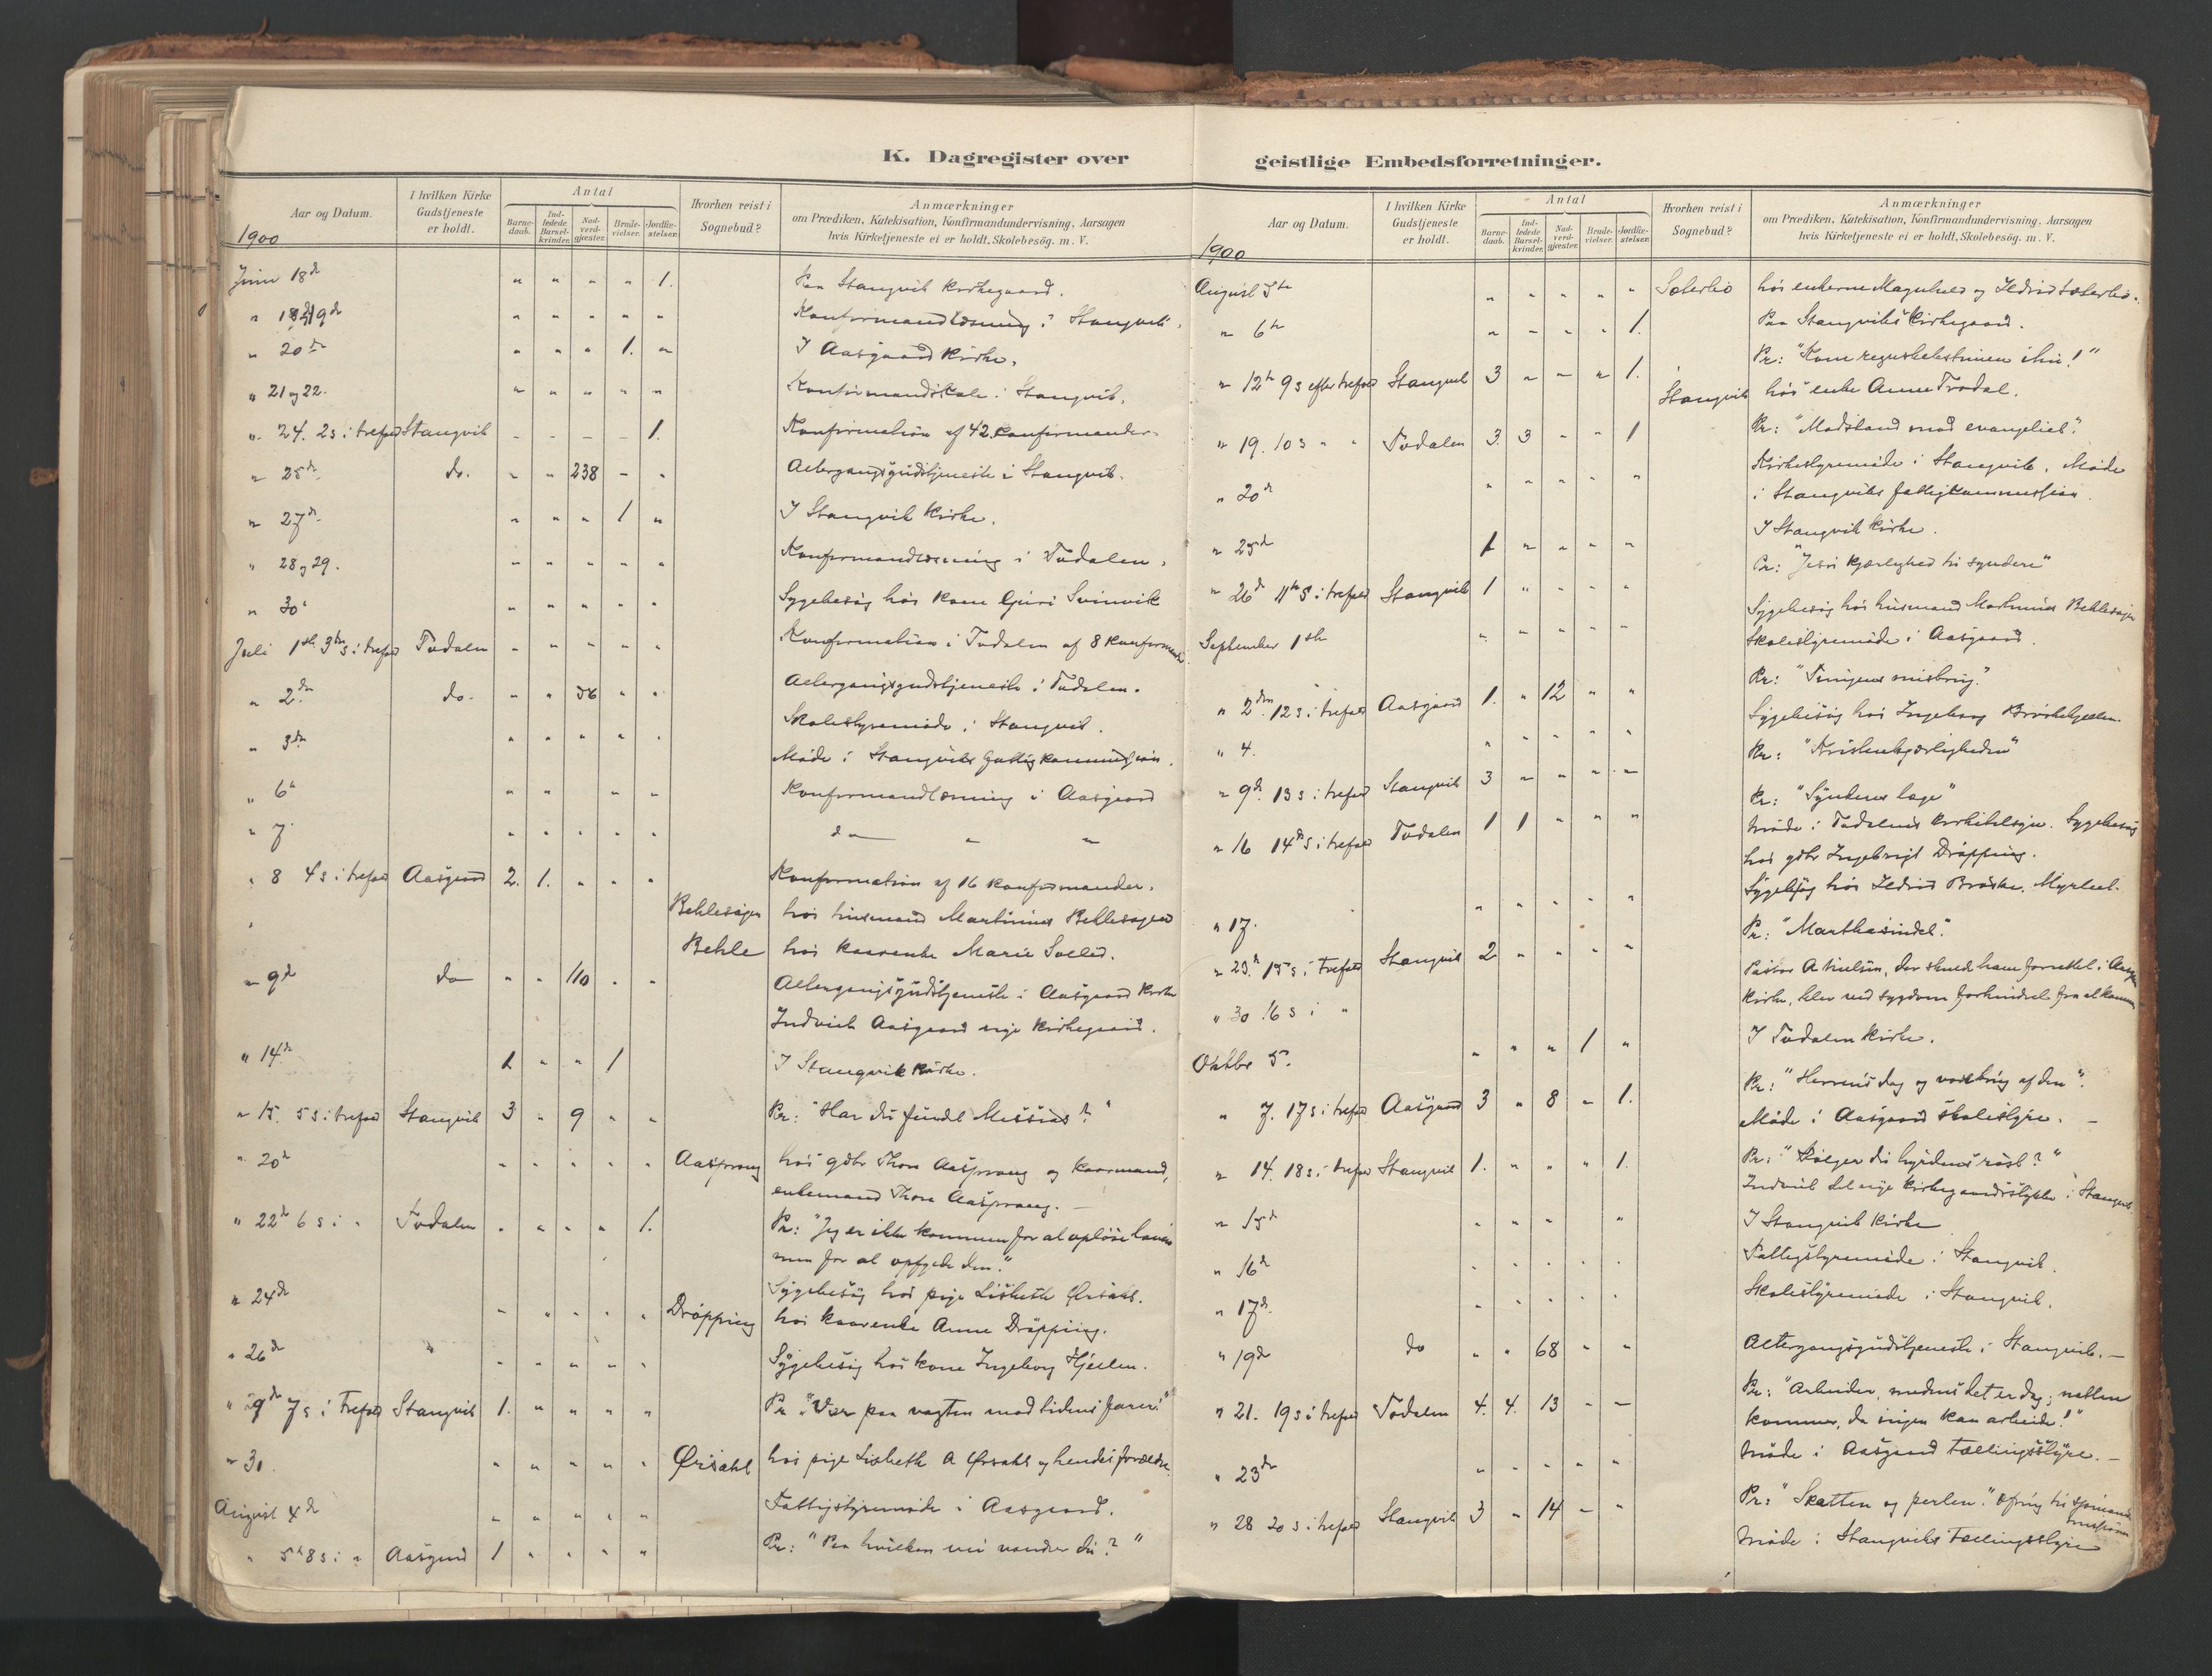 K. Dagregister over
Aar og Datum.
I hvilken Kirke Gudstjeneste er holdt.
Antal
Barne-daab.
Ind-ledede Barsel-kvinder.
Nad-verd-gjæster.
Brude-vielser.
Jordfæ-stelser.
Hvorhen reist i Sognebud?
Anmærkninger
om Prædiken, Katekisation, Konfirmandundervisning, Aarsagen
hvis Kirketjeneste ei er holdt, Skolebesög. m. V.
1900
Juni 18d " " " " 1. Paa Stangvik kirkegaard.
" 18 og 19d " " " " " Konfirmandlæsning i Stangvik.
" 20de " " " 1. " I Aasgaard kirke.
" 21 og 22. " " " " " Konfirmandskole i Stangvik.
" 24. 2 s i trefold Stangvik - - - - 1. Konfirmation af 42 konfirmander.
" 25d do. " " 238 - " Altergangsgudstjeneste i Stangvik.
" 27d " " " 1 " I Stangvik kirke.
" 28 og 29. " " " " " Konfirmandlæsning i Todalen.
" 30d " " " " " Sygebesøg hos kone Guri Svinvik
Juli 1ste 3die s i trefold Todalen " " " " " Konfirmation i Todalen af 8 konfirmander
" 2den do. " " 56 " " Altergangsgudstjeneste i Todalen.
Skolestyremøde i Stangvik.
" 3die " " " " " Møde i Stangviks fattigkommission.
" 6d " " " " Konfirmandlæsning i Aasgaard
" 7. " " " " " do " "
" 8 4 s i trefold Aasgaard 2. 1. " " " Konfirmation af 16 konfirmander.
" Behlesøgen hos husmand Martinius Behlesøgen
Behle hos kaarenke Marie Sollid.
" 9d do " " 110 " " Altergangsgudstjeneste i Aasgaard kirke
Indviet Aasgaard nye kirkegaard.
" 14d 1 " " 1 I Stangvik kirke.
" 15. 5 s i trefold Stangvik 3 " 9 " " Pr: "Har du fundet Messias?"
" 20d " " " " " Aasprong hos gdbr Thore Aasprong og kaarmand,
enkemand Thore Aasprong. —
" 22d 6 s i " Todalen " " " " 1. Pr: "Jeg er ikke kommen for at opløse loven
men for at opfylde den."
" 24d Sygebesøg hos pige Lisbeth Ørsahl.
" " " " " Drøpping hos kaarenke Anne Drøpping.
" 26d " " " " " Sygebesøg hos kone Ingeborg Hjellen.
" 29de 7 s i trefold Stangvik 1. " " " " Pr. "Vær paa vagten mod tidens farer!"
" 30. " " " " " Ørsahl hos pige Lisbeth A Ørsahl og hendes forældre.
August 4d " " " " " Fattigstyremøde i Aasgaard.
" 5d 8 s i " Aasgaard 1 " " " " Pr: "Paa hvilken vei vandrer du?"
geistlige Embedsforretninger.
Aar og Datum.
I hvilken Kirke Gudstjeneste er holdt.
Antal
Barne-daab.
Ind-ledede Barsel-kvinder.
Nad-verd-gjæster.
Brude-vielser.
Jordfæ-stelser.
Hvorhen reist i Sognebud?
Anmærkninger
om Prædiken, Katekisation, Konfirmandundervisning, Aarsagen
hvis Kirketjeneste ei er holdt, Skolebesög. m. V.
1900
August 5te " " " " " Sæterbø hos enkerne Magnhild og Ildrid Sæterbø.
" 6te " " " " 1. Paa Stangviks kirkegaard.
Pr: "Kom
" 12te 9 s efter trefold Stangvik 3 " " " 1. Stangvik hos enke Anne Trødal.
" 19. 10 s " " Todalen 3. 3 " " 1 Pr: "Modstand mod evangeliet."
Kirkestyremøde i Stangvik. Møde
" 20d " " " " " i Stangviks fattigkommission.
" 25d 1 " " " " I Stangvik kirke.
Pr: "Jesu kjærlighed til syndere"
" 26d 11te s i trefold Stangvik 1 " " " " Sygebesøg hos husmand Martinius Behlesøgen
September 1ste " " " " " Skolestyremøde i Aasgaard.
Pr: "Tungens misbrug."
" 2den 12 s i trefold Aasgaard 1. " 12 " " Sygebesøg hos Ingeborg
" 4. " " " " " Pr: "Kristenkjærligheden"
" 9d. 13 s i trefold Stangvik 3 " " " " Pr: "Syndens
" 16 14de s i trefold Todalen 1 1 " " " Møde i Todalens kirketilsyn. Sygebesøg
hos gdbr Ingebrigt Drøpping.
" 17. " " " " " Sygebesøg hos Ildrid Brøske,
Pr: "Marthasindet."
" 23. 15 s i trefold Stangvik 2 " " " " Pastor A Nielsen, der skulde have forrettet i Aasgaard
" 30 16 s i " kirke, blev ved sygdom forhindret fra at komme
Oktbr 5. " " " 1 " I Todalen kirke.
Pr: "Herrens dag og vor brug af den".
" 7. 17 s i trefold Aasgaard 3 " 8 " 1. Møde i Aasgaard skolestyre. —
" 14. 18 s i trefold Stangvik 1. " " " 1. Pr: "Følger du hyrdens røst?"
Indviet det nye kirkegaardsstykke i Stangvik.
" 15d " " " " I Stangvik kirke
" 16d " " " " Fattigstyremøde i Stangvik.
" 17d. " " " " Skolestyremøde i Stangvik.
" 19d do " " 68 " " Altergangsgudstjeneste i Stangvik. —
" 21. 19 s i trefold Todalen 4. 4. 13 " — Pr: "Arbeider, medens det er dag; natten
kommer, da ingen kan arbeide!"
" 23de " " " " " Møde i Aasgaard Tællingsstyre. —
" 28 20 s i trefold Stangvik 3 " 14 — " Pr: "Skatten og perlen." Ofring til sømands
missionen
Møde i Stangviks Tællingsstyre